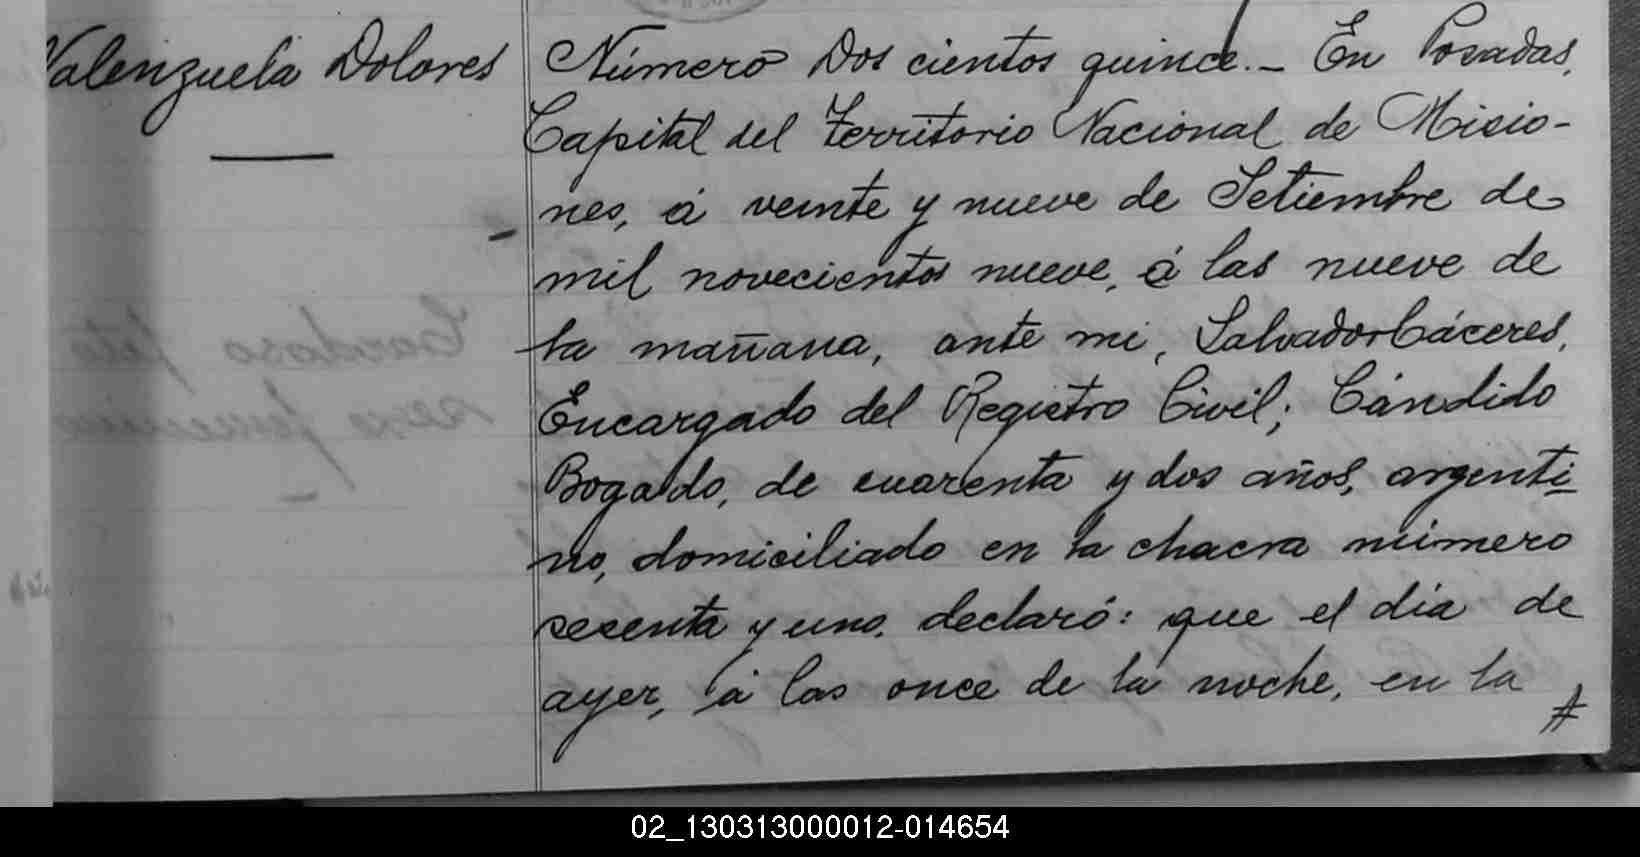 Valenzuela Dolores
Número Dos cientos quince.- En Posadas,
Capital del Territorio Nacional de Misio-
nes, á veinte y nueve de Setiembre de
mil novecientos nueve, á las nueve de
la mañana, ante mi, Salvador Cáceres,
Encargado del Registro Civil; Cándido
Bogado, de cuarenta y dos años, argenti-
no, domiciliado en la chacra número
sesenta y uno, declaró: que el dia de
ayer, á las once de la noche, en la
02_130313000012-014654